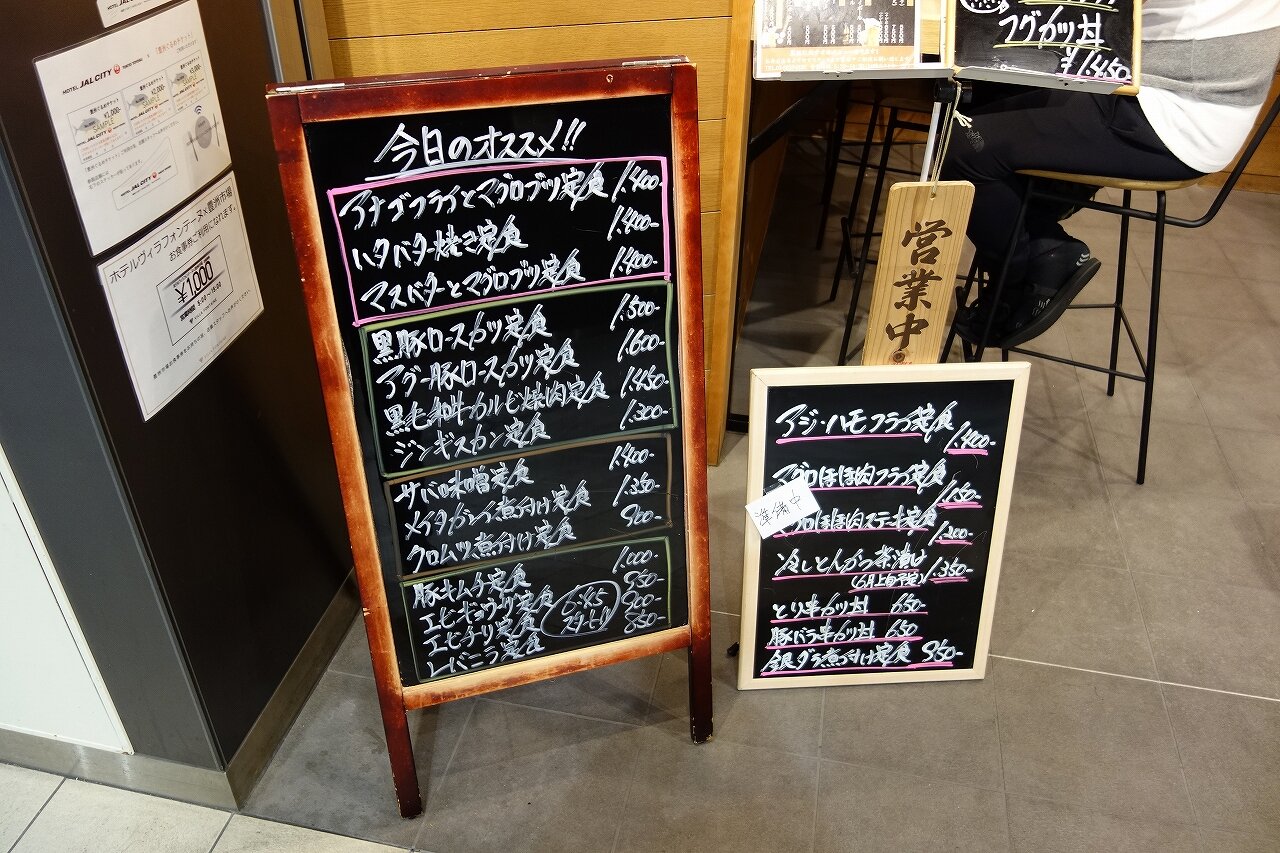 HOTEL JAL CITY
HOTEL JAL CITY TOKYO TOYOSU
豊洲ぐるめチケット
¥1,000-
¥1,000-
¥1,000-
SAMPLE
SAMPLE
SAMPLE
HOTEL JAL CITY
ホテルヴィラフォンテーヌ×豊洲市場
お食事券ご利用になれます。
¥1,000
今日のオススメ!!
アナゴフライとマグロブツ定食 1.400-
ハタバター焼き定食 1.400-
マスバターとマグロブツ定食 1.400-
黒豚ロースカツ定食 1.500-
アグー豚ロースカツ定食 1.600-
黒毛和牛カルビ焼肉定食 1.450-
ジンギスカン定食 1.300-
サバロ味噌定食 1.400-
メイタガレイ煮付け定食 1.350-
クロムツ煮付け定食 900-
豚キムチ定食 1.000-
エビギョウザ定食 950-
エビチリ定食 900-
レバニラ定食 850-
6:45
スタート!!
マグカツ丼
¥1,450-
営業中
アジ・ハモフライ定食
1.400-
マグロほほ肉フライ定食
1.150-
準備中
マグロほほ肉ステーキ定食
1.200-
冷しとんかつ茶漬け
(6月上旬予定) 1.350-
とり串カツ丼 650-
豚バラ串カツ丼 650-
銀ダラ煮付け定食 950-